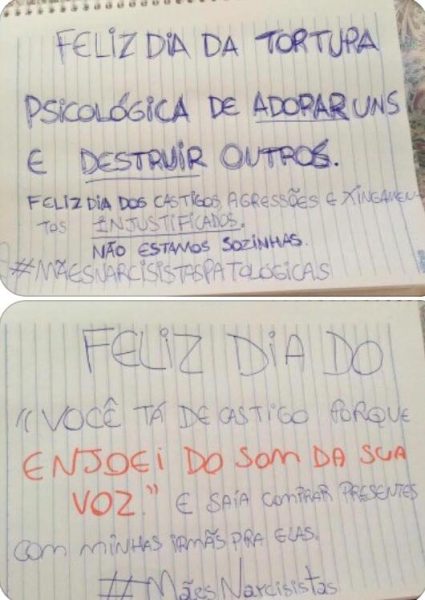 FELIZ DIA DA TORTURA
PSICOLÓGICA DE ADORAR UNS
E DESTRUIR OUTROS.
FELIZ DIA DOS CASTIGOS, AGRESSÕES E XINGAMEN-
TOS INJUSTIFICADOS.
NÃO ESTAMOS SOZINHAS.
#MÃESNARCISISTASPATOLÓGICAS
FELIZ DIA DO
"VOCÊ TÁ DE CASTIGO PORQUE
ENJOEI DO SOM DA SUA
VOZ." E SAIA COMPRAR PRESENTES
COM MINHAS IRMÃS PRA ELAS.
#MÃESNARCISISTAS